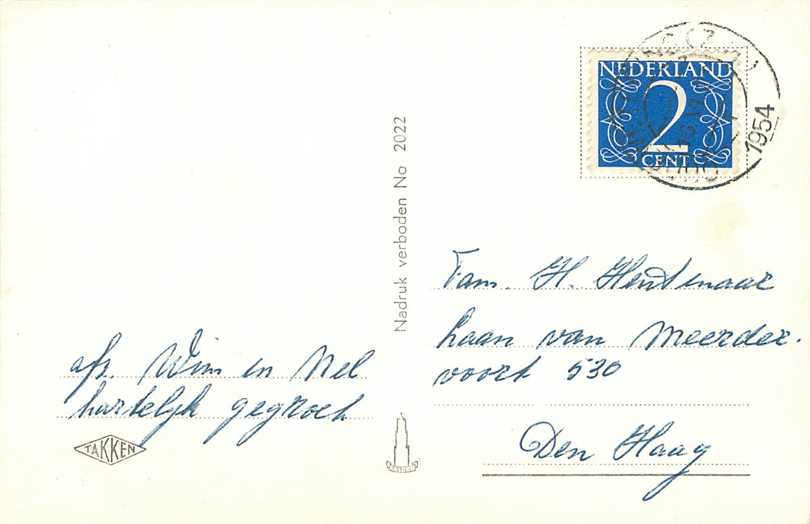 NEDERLAND
2
CENT
1954
Nadruk verboden No 2022
Fam. H. Hentenaar
Laan van Meerder-
voort 530
Den Haag
afz. Wim en Nel
hartelijk gegroet
TAKKEN